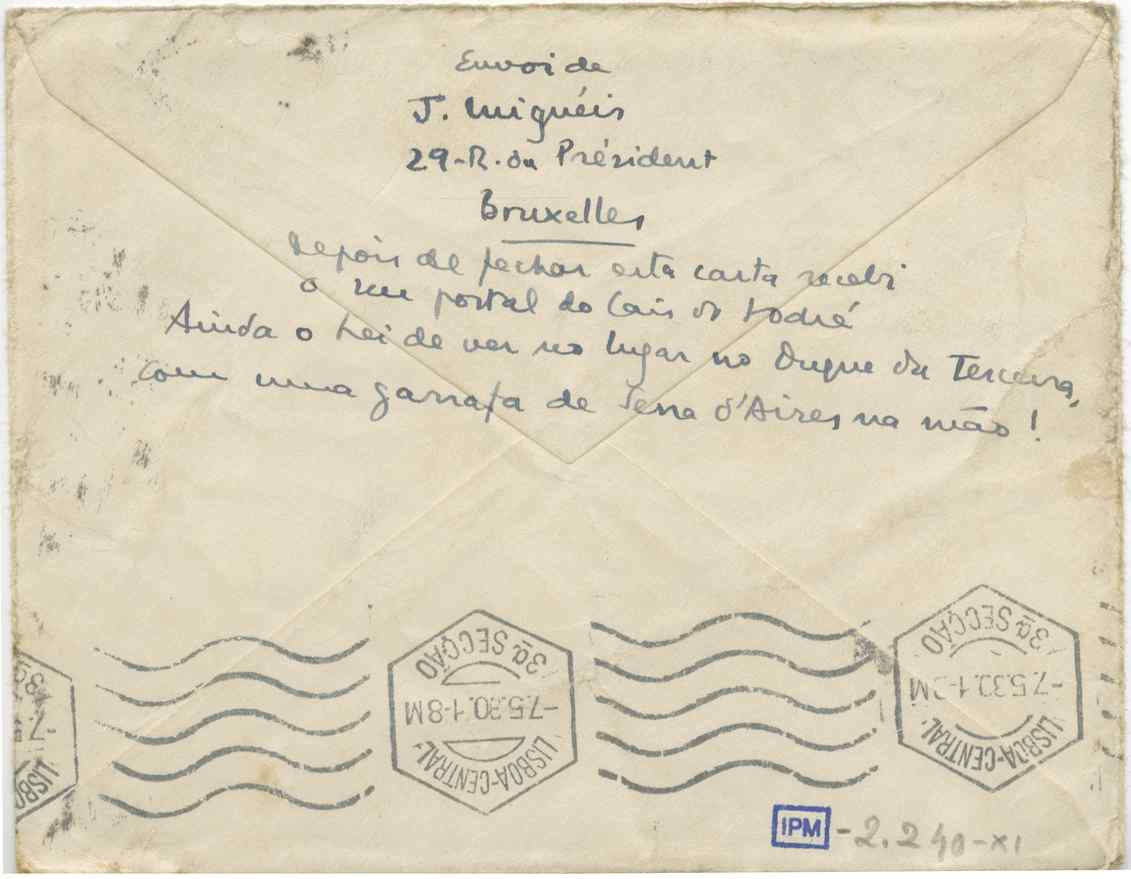 Envoi de
J. Miguéis
29-R. du Président
Bruxelles
Depois de fechar esta carta recebi
o seu postal do Cais do Sodré
Ainda o hei de ver no lugar no Duque da Terceira,
com uma garrafa de Serra d'Aires na mão!
3ª SECÇÃO
-7.5.30.1-8M
LISBOA-CENTRAL
3ª SECÇÃO
-7.5.30.1-8M
LISBOA-CENTRAL
LISBO
IPM -2.240-XI